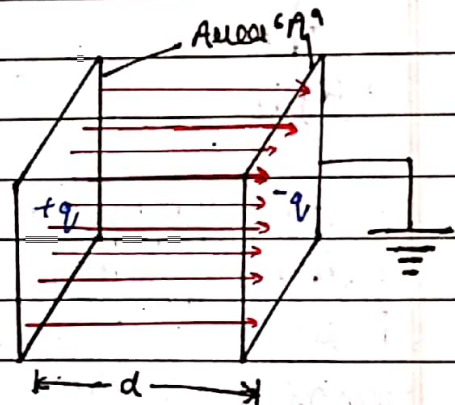 Area "A"
+q
-q
d